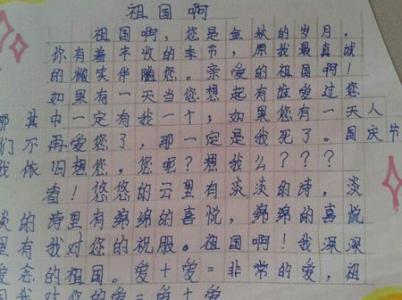 祖国啊
祖国啊，您是金秋的岁月，
你有着丰收的季节，愿我最真诚
的微笑伴随您。亲爱的祖国啊！
如果有一天当您想起有谁爱过您
那其中一定有我一个；如果您有一天人
们不再爱您了，那一定是我死了。国庆节
我依旧想您。您呢？想我么？？？
看！悠悠的云里有淡淡的诗，淡
淡的诗里有绵绵的喜悦，绵绵的喜悦
里有我对您的祝服。祖国啊！我深深
爱念的祖国。爱＋爱＝非常的爱，祖
国我对您的爱＝爱＋爱